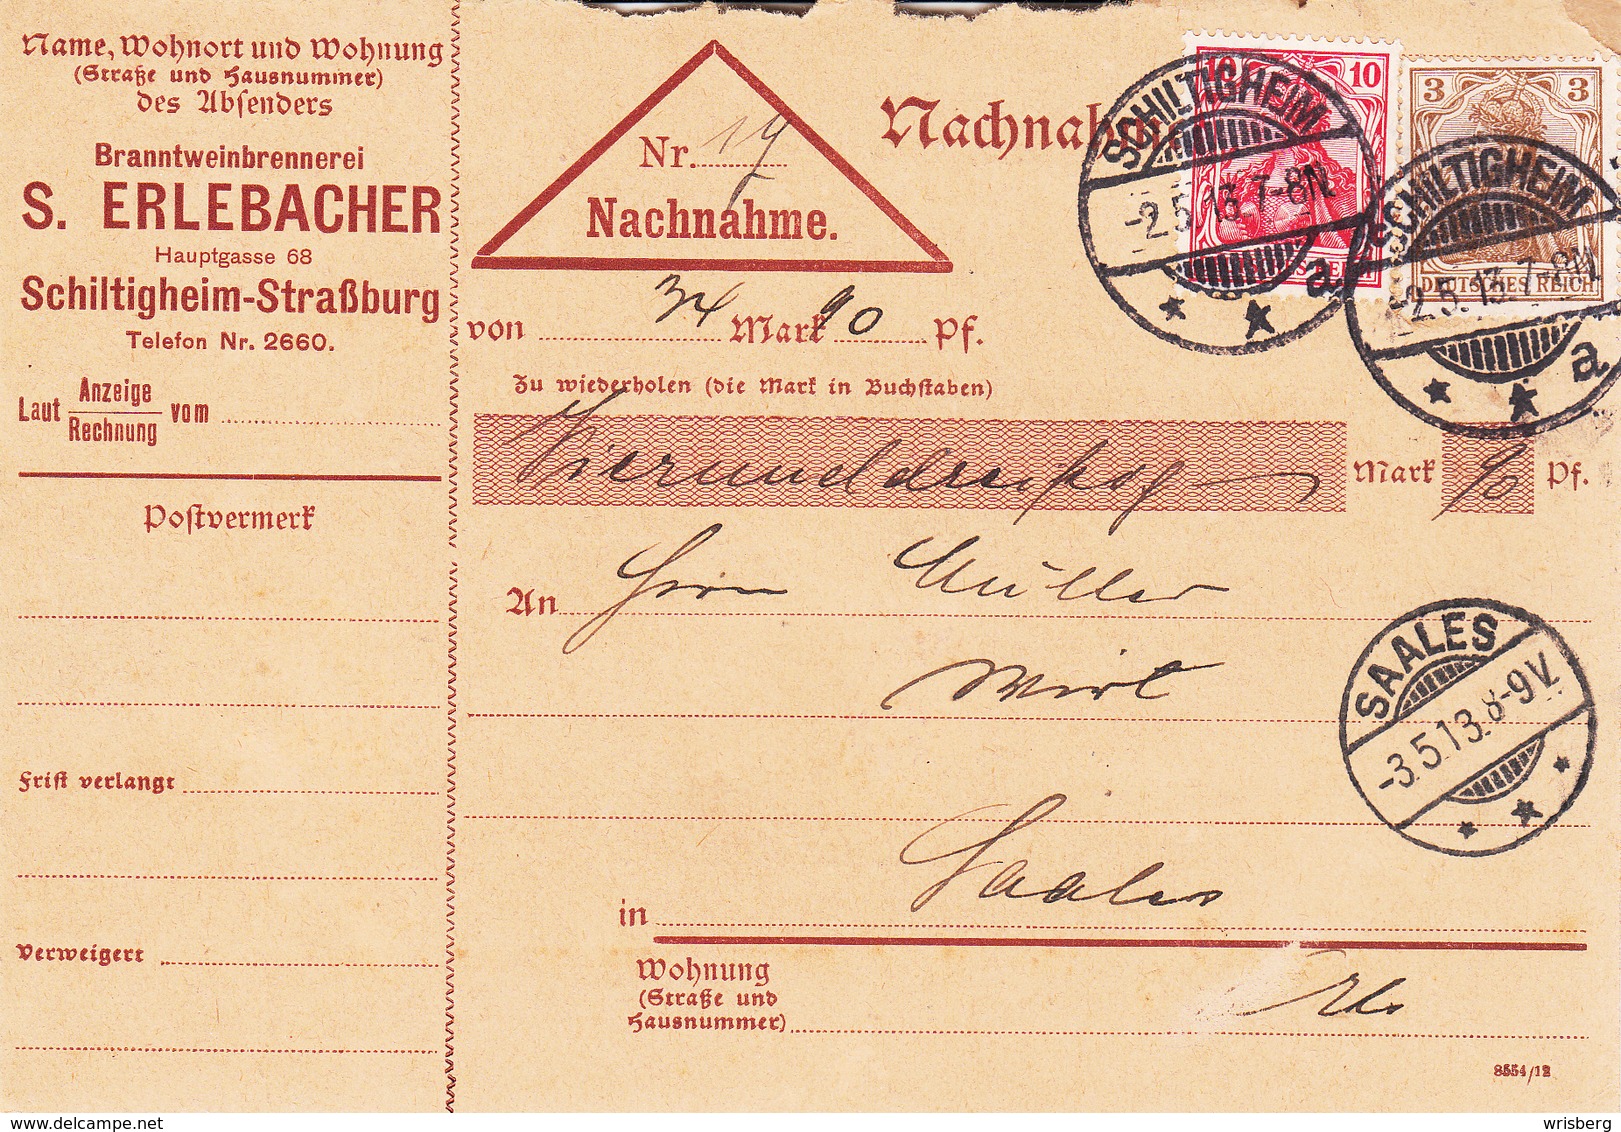 Name, Wohnort und Wohnung
(Straße und Hausnummer)
des Absenders
Branntweinbrennerei
S. ERLEBACHER
Hauptgasse 68
Schiltigheim-Straßburg
Telefon Nr. 2660.
Laut Anzeige vom
Rechnung
Postvermerk
Frist verlangt
Verweigert
Nr.
Nachnahme.
10
3 3
DEUTSCHES REICH
SCHILTIGHEIM
-2.5.13.7-8N.
a
SCHILTIGHEIM
-2.5.13.7-8N.
a
von 34 Mark 90 Pf.
Zu wiederholen (die Mark in Buchstaben)
Vierunddreißig Mark 90 Pf.
An Herrn Müller
Wirt
SAALES
-3.5.13.8-9V.
in Saales
Wohnung
(Straße und
Hausnummer)
8554/12
delcampe.net
wrisberg